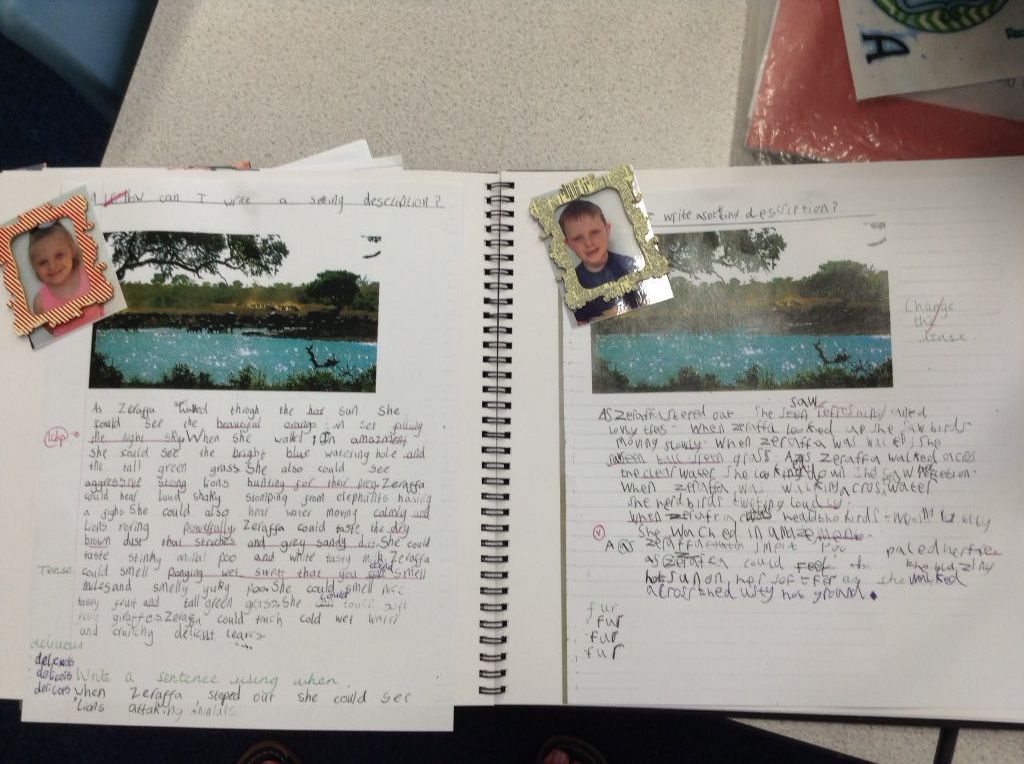 How can I write a seting description?
As Zeraffa walked throgh the hot sun she
could see the beautiful orange sun set filling
the night sky. When she walkt in amazment
she could see the bright blue watering hole and
the tall green grass. She also could see
aggressive strong lions hunting for their prey. Zeraffa
could hear loud shaky stomping from elephants having
a fight. She could also hear water moving calmly and
lions roring powerfully. Zeraffa could taste the dry
brown dust that streches and grey sandy She could
taste stinky animal poo and white tasty milk. Zeraffa
could smell ponging wet swett that you could smell
miles and smelly yuky poo. She could smell nice
tasty fruit and tall green grass. She could touch soft
giraffes. Zeraffa could touch cold wet water
and crunchy delicost leaves.
Tense
delicous
delicous
delicous
delicous
Write a sentence using when
when Zeraffa steped out she could see
lions attaking animals
write a setting description?
Change
the
tense
saw
As zeraffa stered out she seen refreshing
trees. When zeraffa looked up she saw birds
moving slowly. When zeraffa was she
seen green grass. As zeraffa walked acros
the cleer water she looking down she saw
When zeraffa was walking acros water
she herd birds tweeting loudly
when zeraffa head the birds
she walked in amzement.
As zeraffa smelt poo
as zeraffa could feel the
hot sun on her soft fur as she walked
across the dusty hot ground.
fur
fur
fur
fur
A